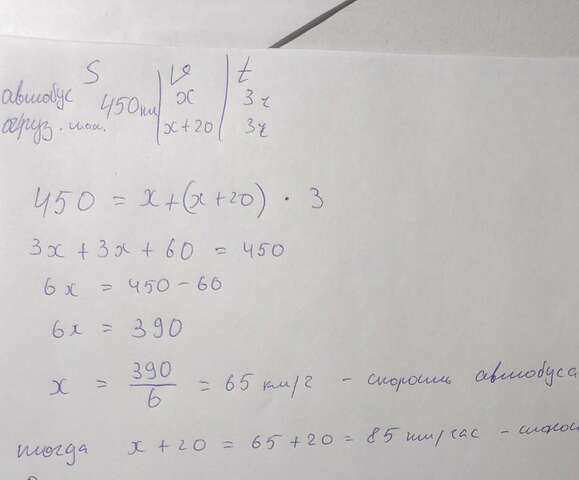 S v t
автобус 450 км x 3 ч
груз. маш. x+20 3ч
450 = x+(x+20) · 3
3x + 3x + 60 = 450
6x = 450-60
6x = 390
x = 390/6 = 65 км/г - скорость автобуса
тогда x+20 = 65+20 = 85 км/час - скорос